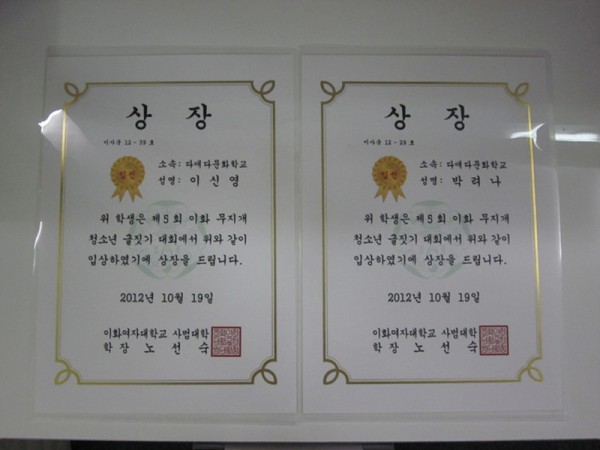 상 장
이사글 12 - 39 호
소속: 다애다문화학교
성명: 이 신 영
입선
위 학생은 제5회 이화 무지개
청소년 글짓기 대회에서 위와 같이
입상하였기에 상장을 드립니다.
2012년 10월 19일
이화여자대학교 사범대학
학 장 노 선 숙
상 장
이사글 12 - 25 호
소속: 다애다문화학교
성명: 박 려 나
입선
위 학생은 제5회 이화 무지개
청소년 글짓기 대회에서 위와 같이
입상하였기에 상장을 드립니다.
2012년 10월 19일
이화여자대학교 사범대학
학 장 노 선 숙